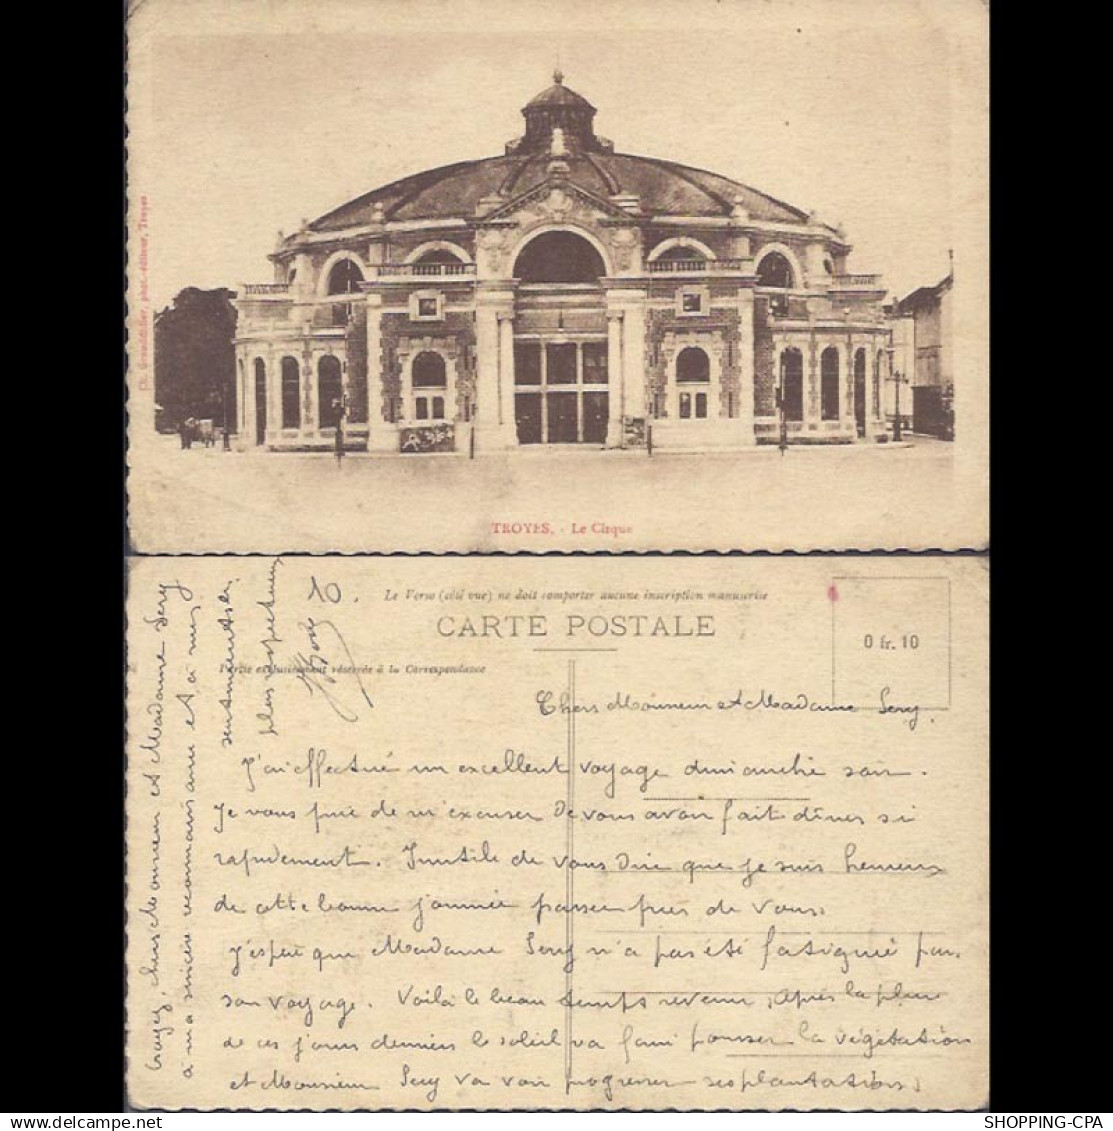 Ch. Grandidier, phot.-éditeur, Troyes
TROYES. - Le Cirque
Le Verso (côté vue) ne doit comporter aucune inscription manuscrite
CARTE POSTALE
Partie exclusivement réservée à la Correspondance
0 fr. 10
10.
Chers Monsieur et Madame Sery.
J'ai effectué un excellent voyage dimanche soir.
Je vous prie de m'excuser de vous avoir fait dîner si
rapidement. Inutile de vous dire que je suis heureux
de cette bonne journée passée près de vous.
J'espère que Madame Sery n'a pas été fatiguée par
son voyage. Voilà le beau temps revenu, après la pluie
de ces jours derniers le soleil va faire pousser la végétation
et Monsieur Sery va voir progresser ses plantations.
Croyez, chers Monsieur et Madame Sery
à ma sincère reconnaissance et à mes
sentiments les
plus respectueux